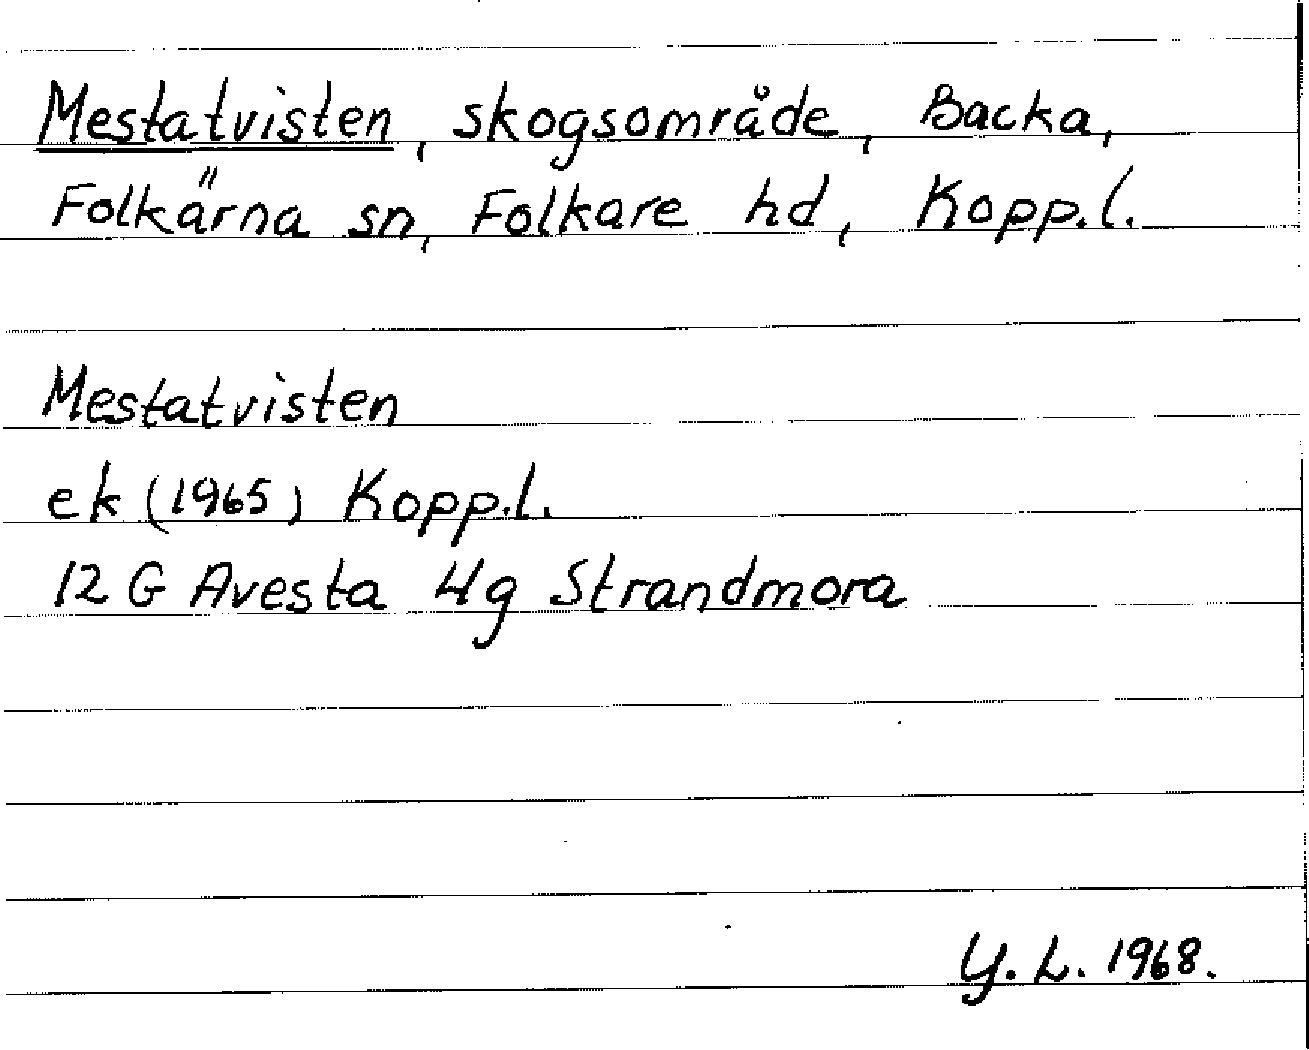 Mestatvisten, skogsområde, Backa,
Folkärna sn, Folkare hd, Kopp.l.
Mestatvisten
ek (1965) Kopp.l.
12 G Avesta 4g Strandmora
Y. L. 1968.